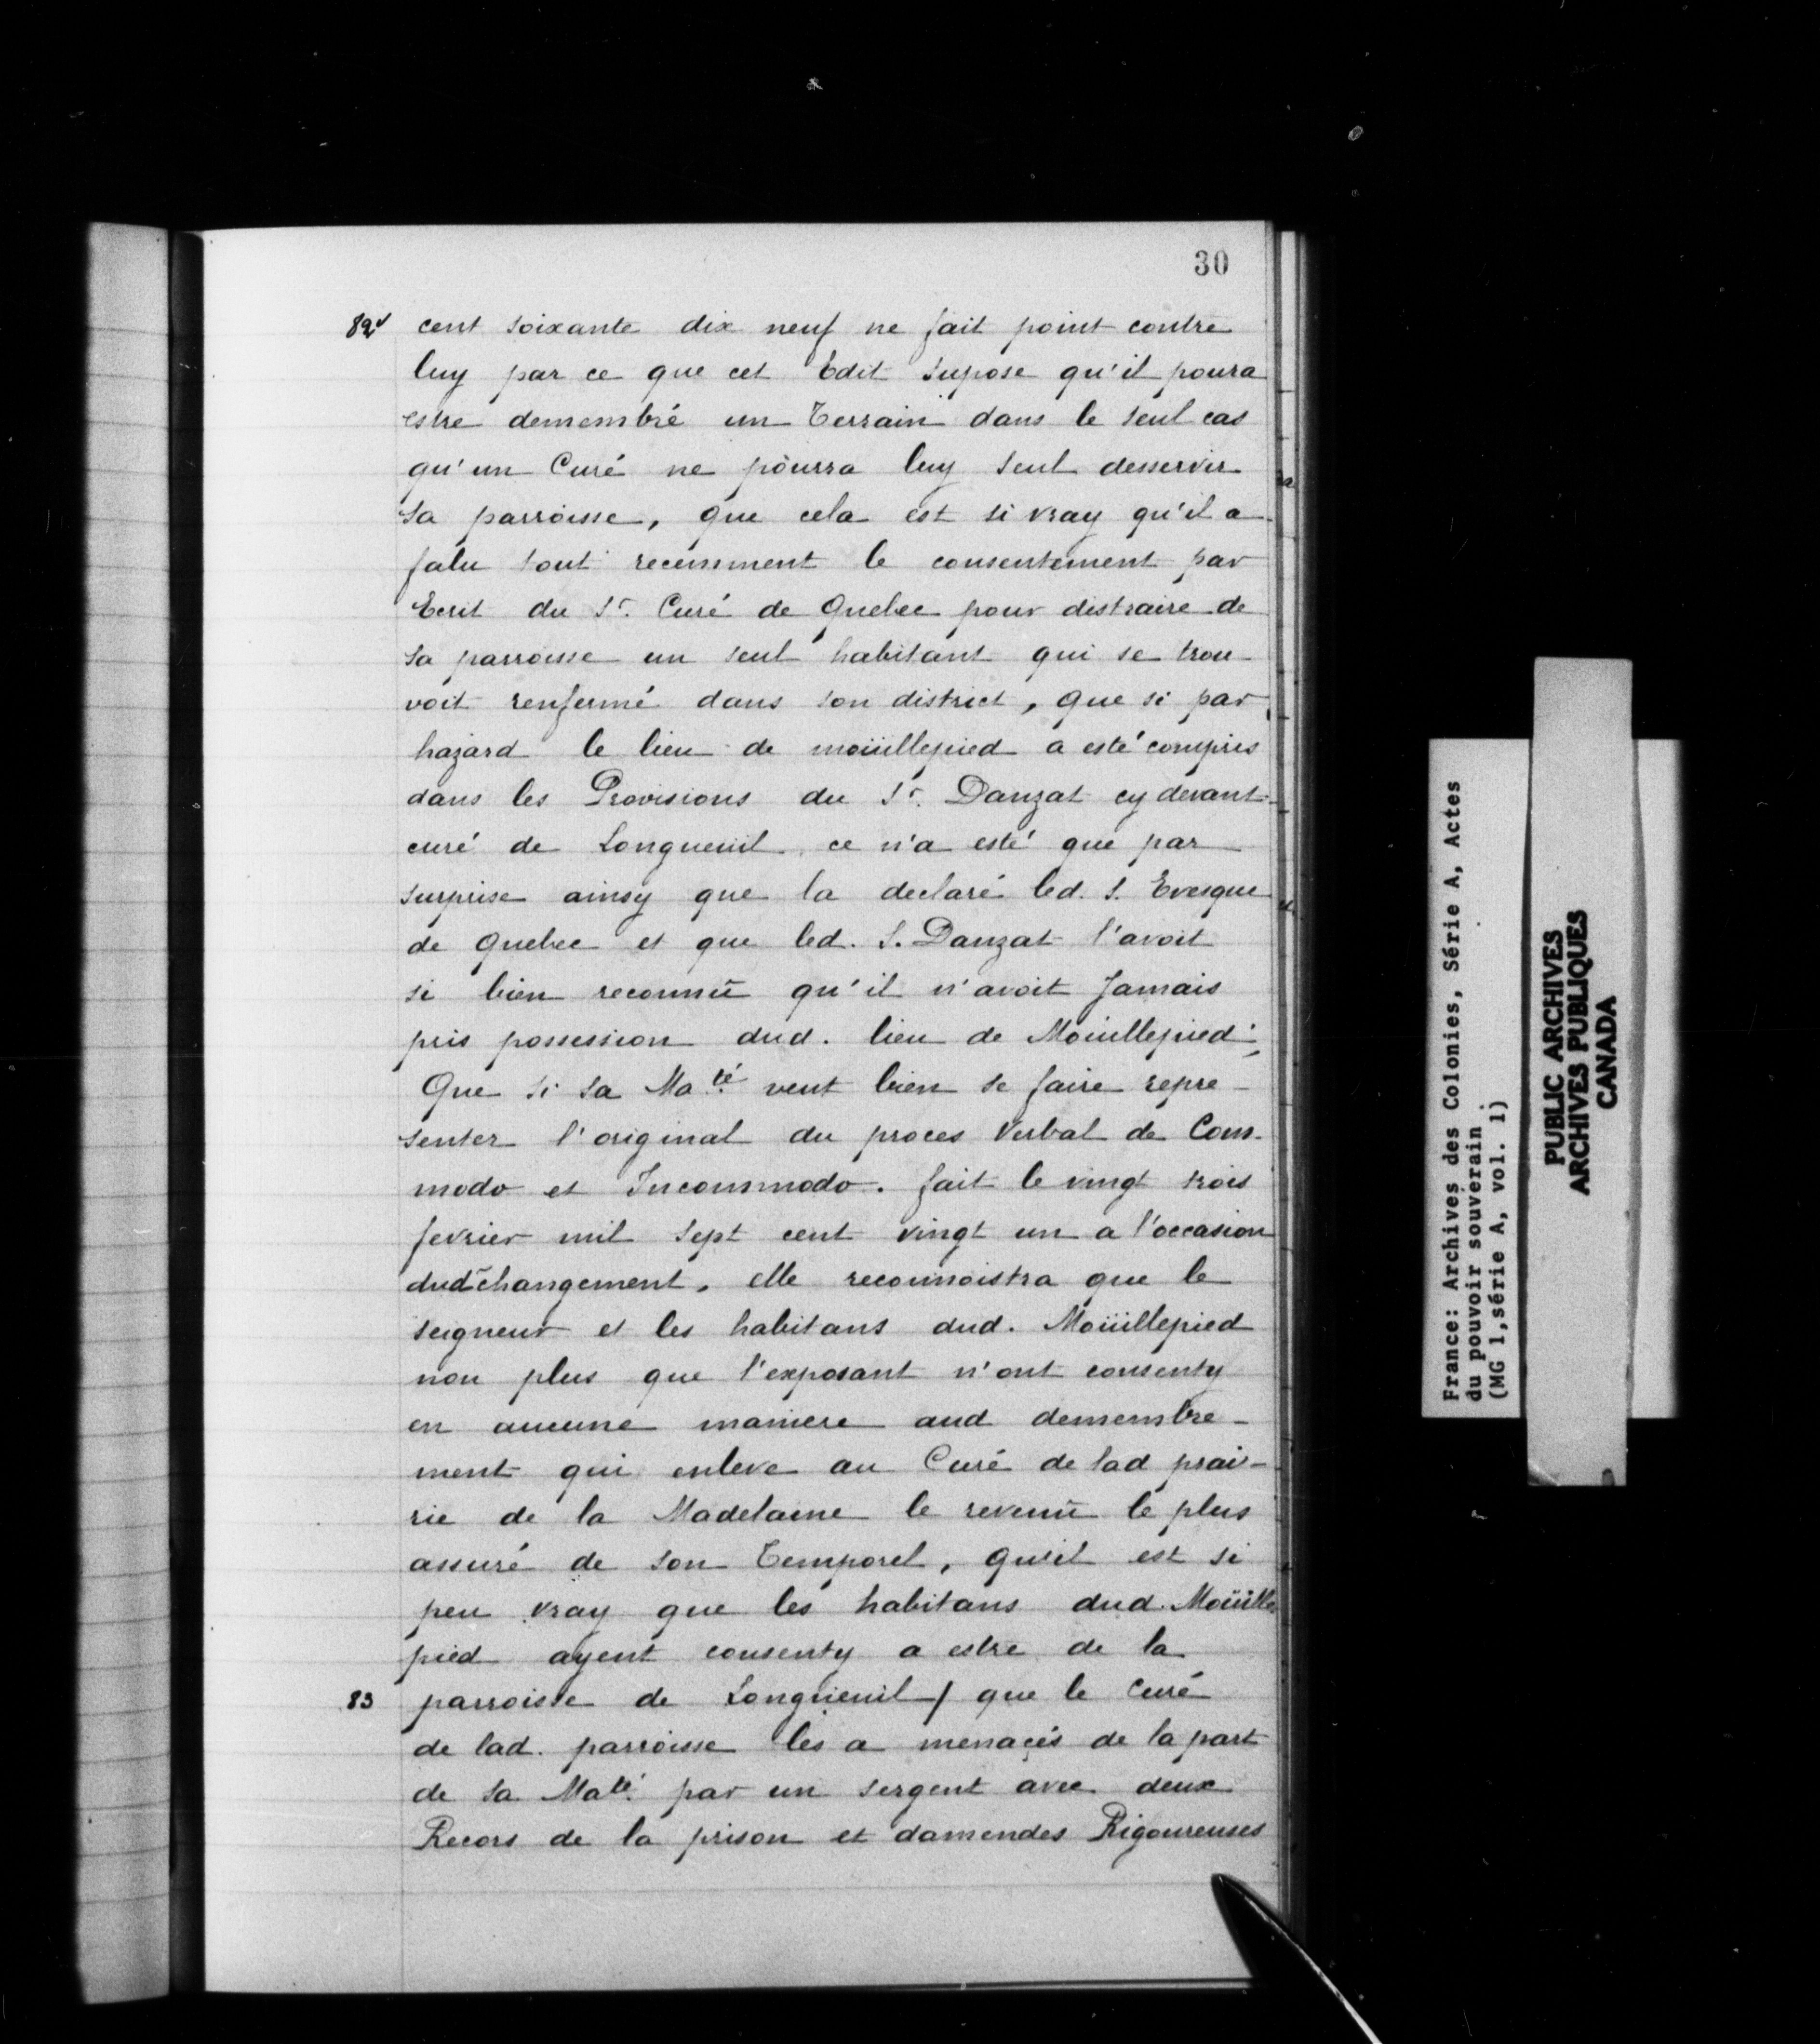 30
82v cent soixante dix neuf ne fait point contre
luy par ce que cet Edit supose qu'il poura
estre demembré un Terrain dans le seul cas
qu'un Curé ne pourra luy seul desservir
sa parroisse, que cela est si vray qu'il a
falu tout recemment le consentement par
Ecrit du Sr. Curé de Quebec pour distraire de
sa parroisse un seul habitant qui se trou-
voit renfermé dans son district, que si par
hazard le lieu de moüillepied a esté compris
dans les Provisions du Sr. Danzat cy devant
curé de Longueuil, ce n'a esté que par
surprise ainsy que la declaré led. S. Evesque
de Quebec et que led. S. Danzat l'avoit
si bien reconnû qu'il n'avoit Jamais
pris possession dud. lieu de Moüillepied;
Que si sa Maté veut bien se faire repre-
senter l'original du proces Verbal de Com-
modo et Incommodo. fait le vingt trois
fevrier mil sept cent vingt un a l'occasion
dud changement, elle reconnoistra que le
seigneur et les habitans dud. Moüillepied
non plus que l'exposant n'ont consenty
en aucune maniere aud demembre-
ment qui enleve au Curé de lad prai-
rie de la Madelaine le revenû le plus
assuré de son Temporel, qu'il est si
peu vray que les habitans dud. Moüille
pied ayent consenty a estre de la
83 parroisse de Longueuil / que le Curé
de lad. parroisse les a menacés de la part
de sa Maté. par un sergent avec deux
Recors de la prison et damendes Rigoureuses
France: Archives des Colonies, Série A, Actes
du pouvoir souverain.
(MG 1,série A, vol. 1)
PUBLIC ARCHIVES
ARCHIVES PUBLIQUES
CANADA